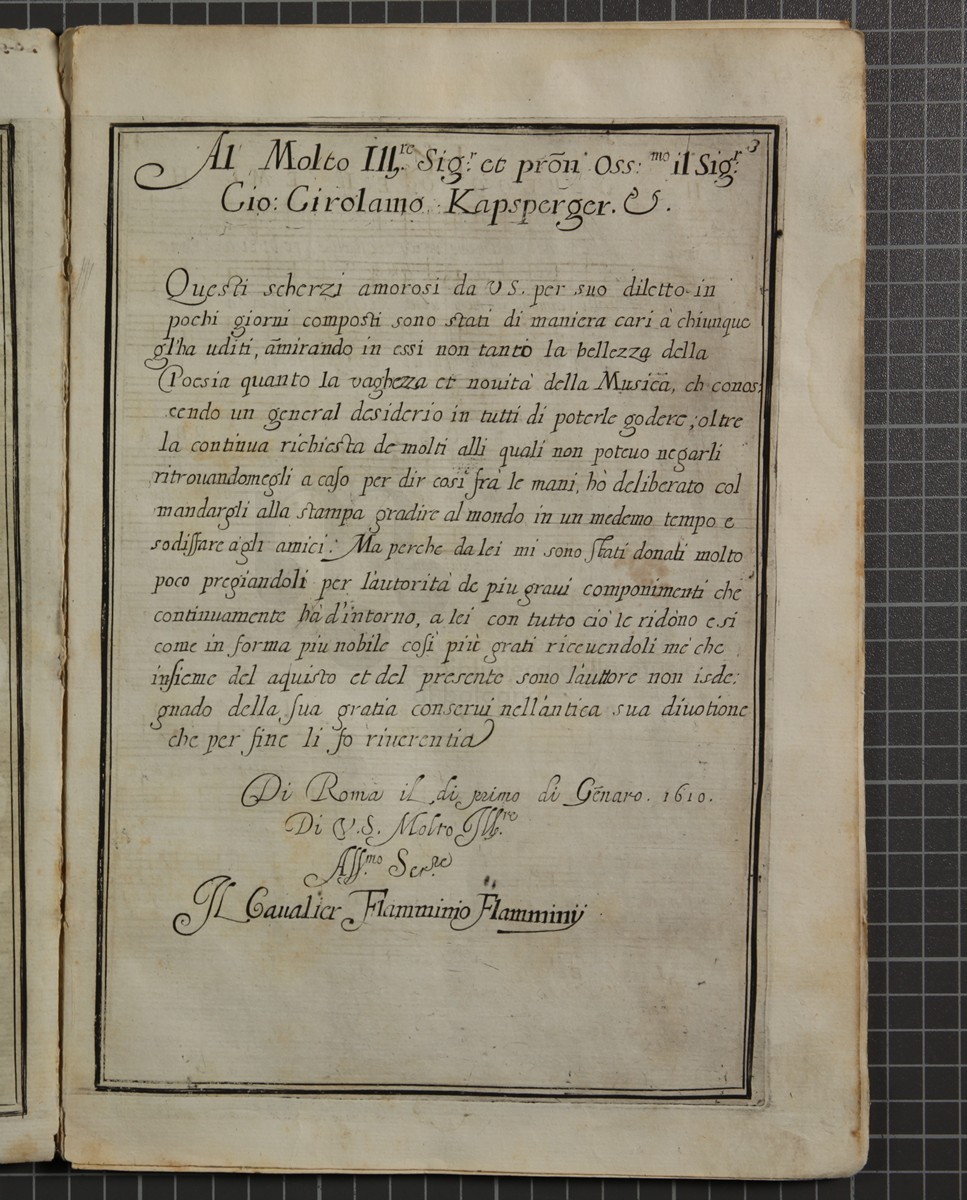 3
Al Molto Ill.re Sig.r et prõn Oss:mo il Sig.r
Gio: Girolamo Kapsperger. &.
Questi scherzi amorosi da V S. per suo diletto in
pochi giorni composti sono stati di maniera cari à chiunque
gl'ha uditi, am̃irando in essi non tanto la bellezza della
Poesia quanto la vaghezza et nouità della Musica, ch conos;
cendo un general desiderio in tutti di poterle godere, oltre
la continua richiesta de molti alli quali non poteuo negarli
ritrouandomegli a caso per dir così fra le mani, hò deliberato col
mandargli alla stampa gradire al mondo in un medemo tempo e
sodisfare agli amici. Ma perche da lei mi sono stati donati molto
poco pregiandoli per l'autorità de piu graui componimenti che
continuamente hà d'intorno, a lei con tutto ciò le ridòno e si
come in forma più nobile così più grati riceuendoli me che
insieme del aquisto et del presente sono l'auttore non isde:
gnado della sua gratia conserui nell'antica sua diuotione
che per fine li fo riuerentia
Di Roma il di primo di Gẽnaro. 1610.
Di V.S. Molto Ill.re
Aff.mo Ser.re
Il Caualier Flamminio Flamminij